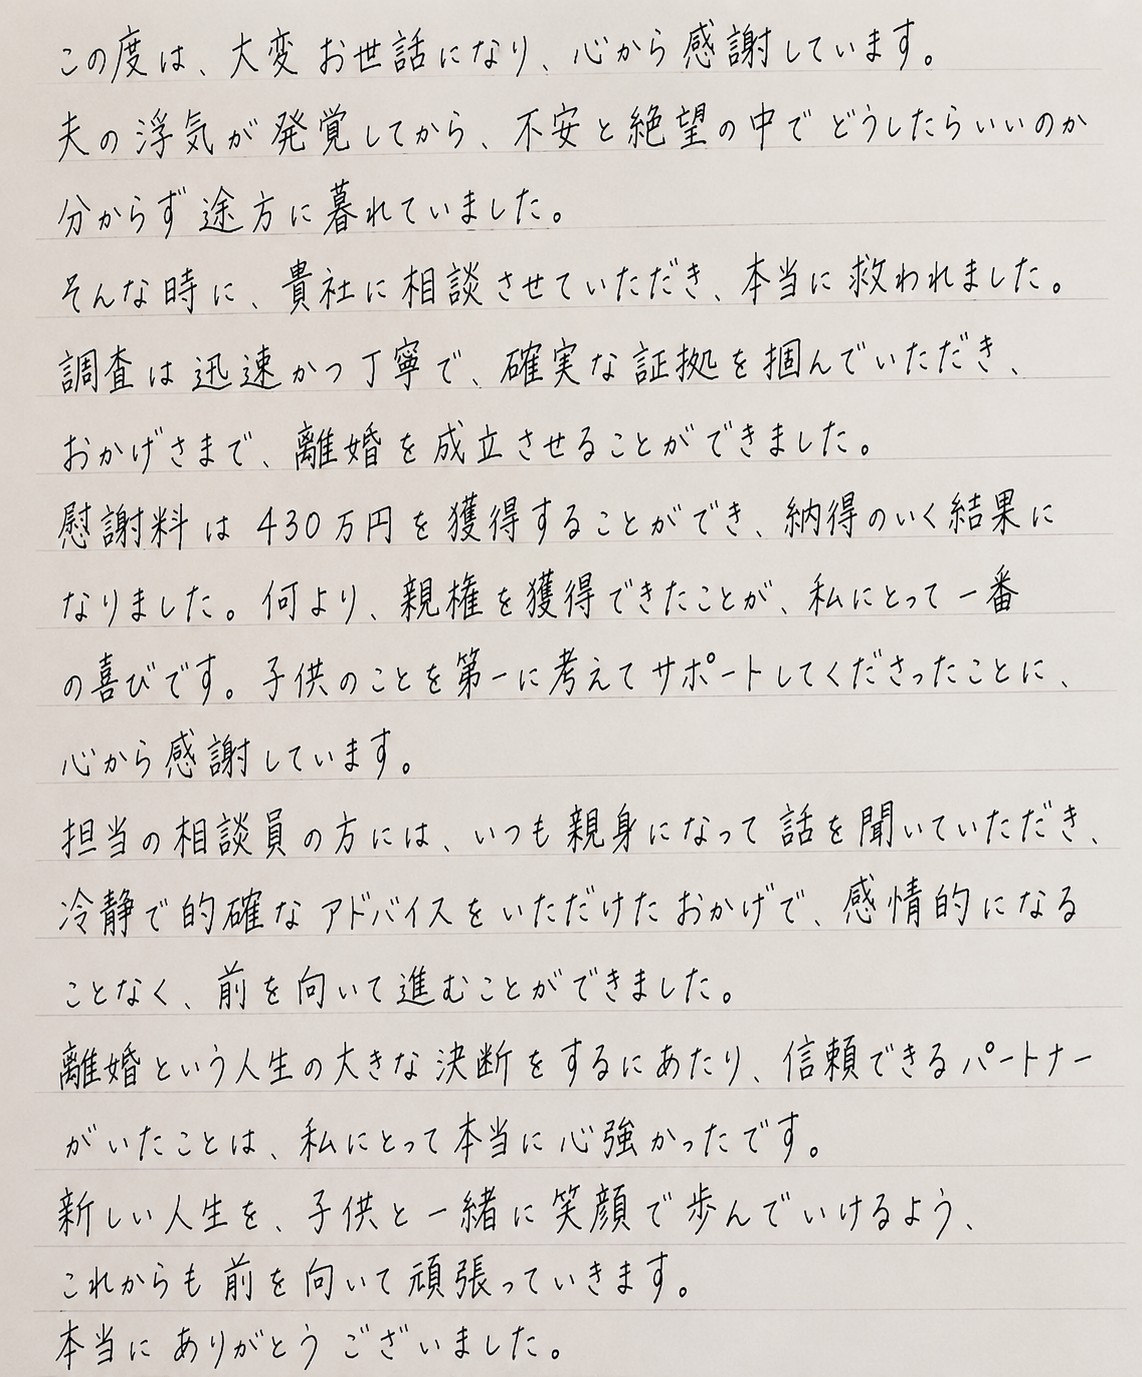 この度は、大変お世話になり、心から感謝しています。
夫の浮気が発覚してから、不安と絶望の中でどうしたらいいのか
分からず途方に暮れていました。
そんな時に、貴社に相談させていただき、本当に救われました。
調査は迅速かつ丁寧で、確実な証拠を掴んでいただき、
おかげさまで、離婚を成立させることができました。
慰謝料は430万円を獲得することができ、納得のいく結果に
なりました。何より、親権を獲得できたことが、私にとって一番
の喜びです。子供のことを第一に考えてサポートしてくださったことに、
心から感謝しています。
担当の相談員の方には、いつも親身になって話を聞いていただき、
冷静で的確なアドバイスをいただけたおかげで、感情的になる
ことなく、前を向いて進むことができました。
離婚という人生の大きな決断をするにあたり、信頼できるパートナー
がいたことは、私にとって本当に心強かったです。
新しい人生を、子供と一緒に笑顔で歩んでいけるよう、
これからも前を向いて頑張っていきます。
本当にありがとうございました。